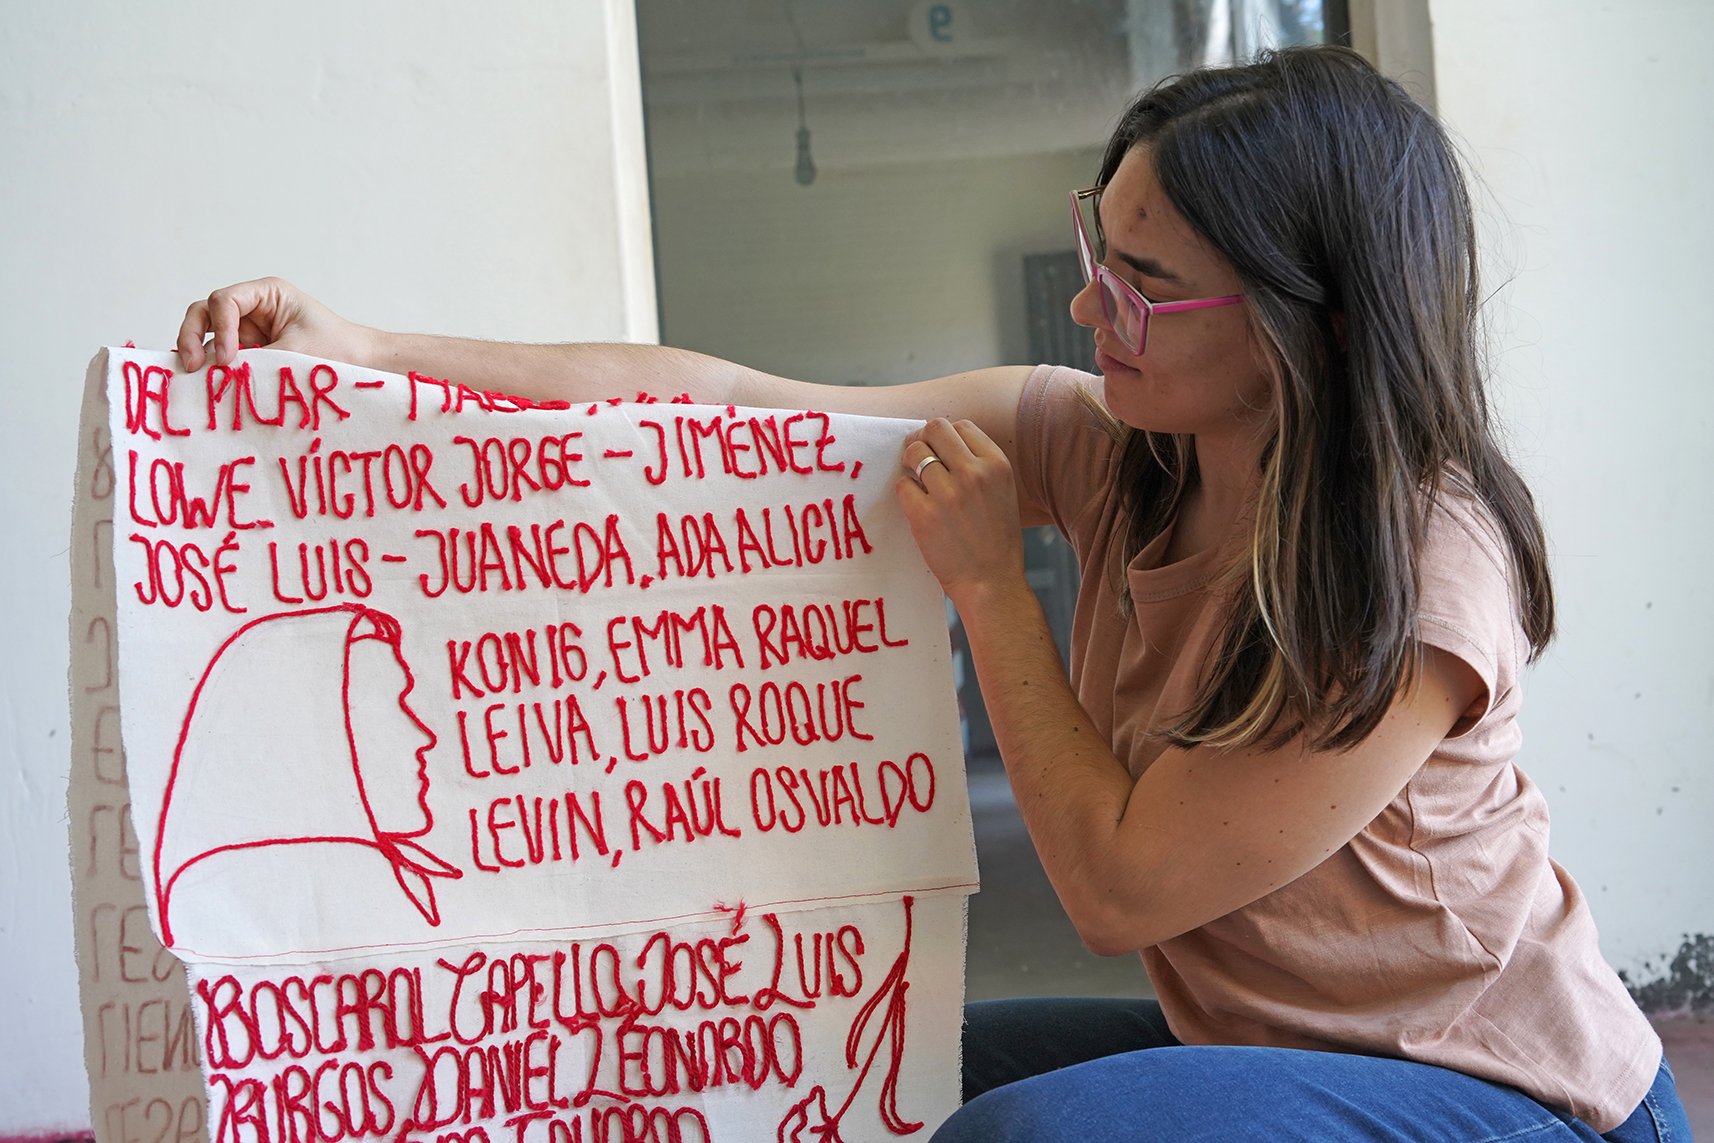 DEL PILAR -
LOWE VÍCTOR JORGE - JIMÉNEZ,
JOSÉ LUIS - JUANEDA, ADA ALICIA
KONIG, EMMA RAQUEL
LEIVA, LUIS ROQUE
LEVIN, RAÚL OSVALDO
BOSCAROL CAPELLO, JOSÉ LUIS
BURGOS, DANIEL LEONARDO
9